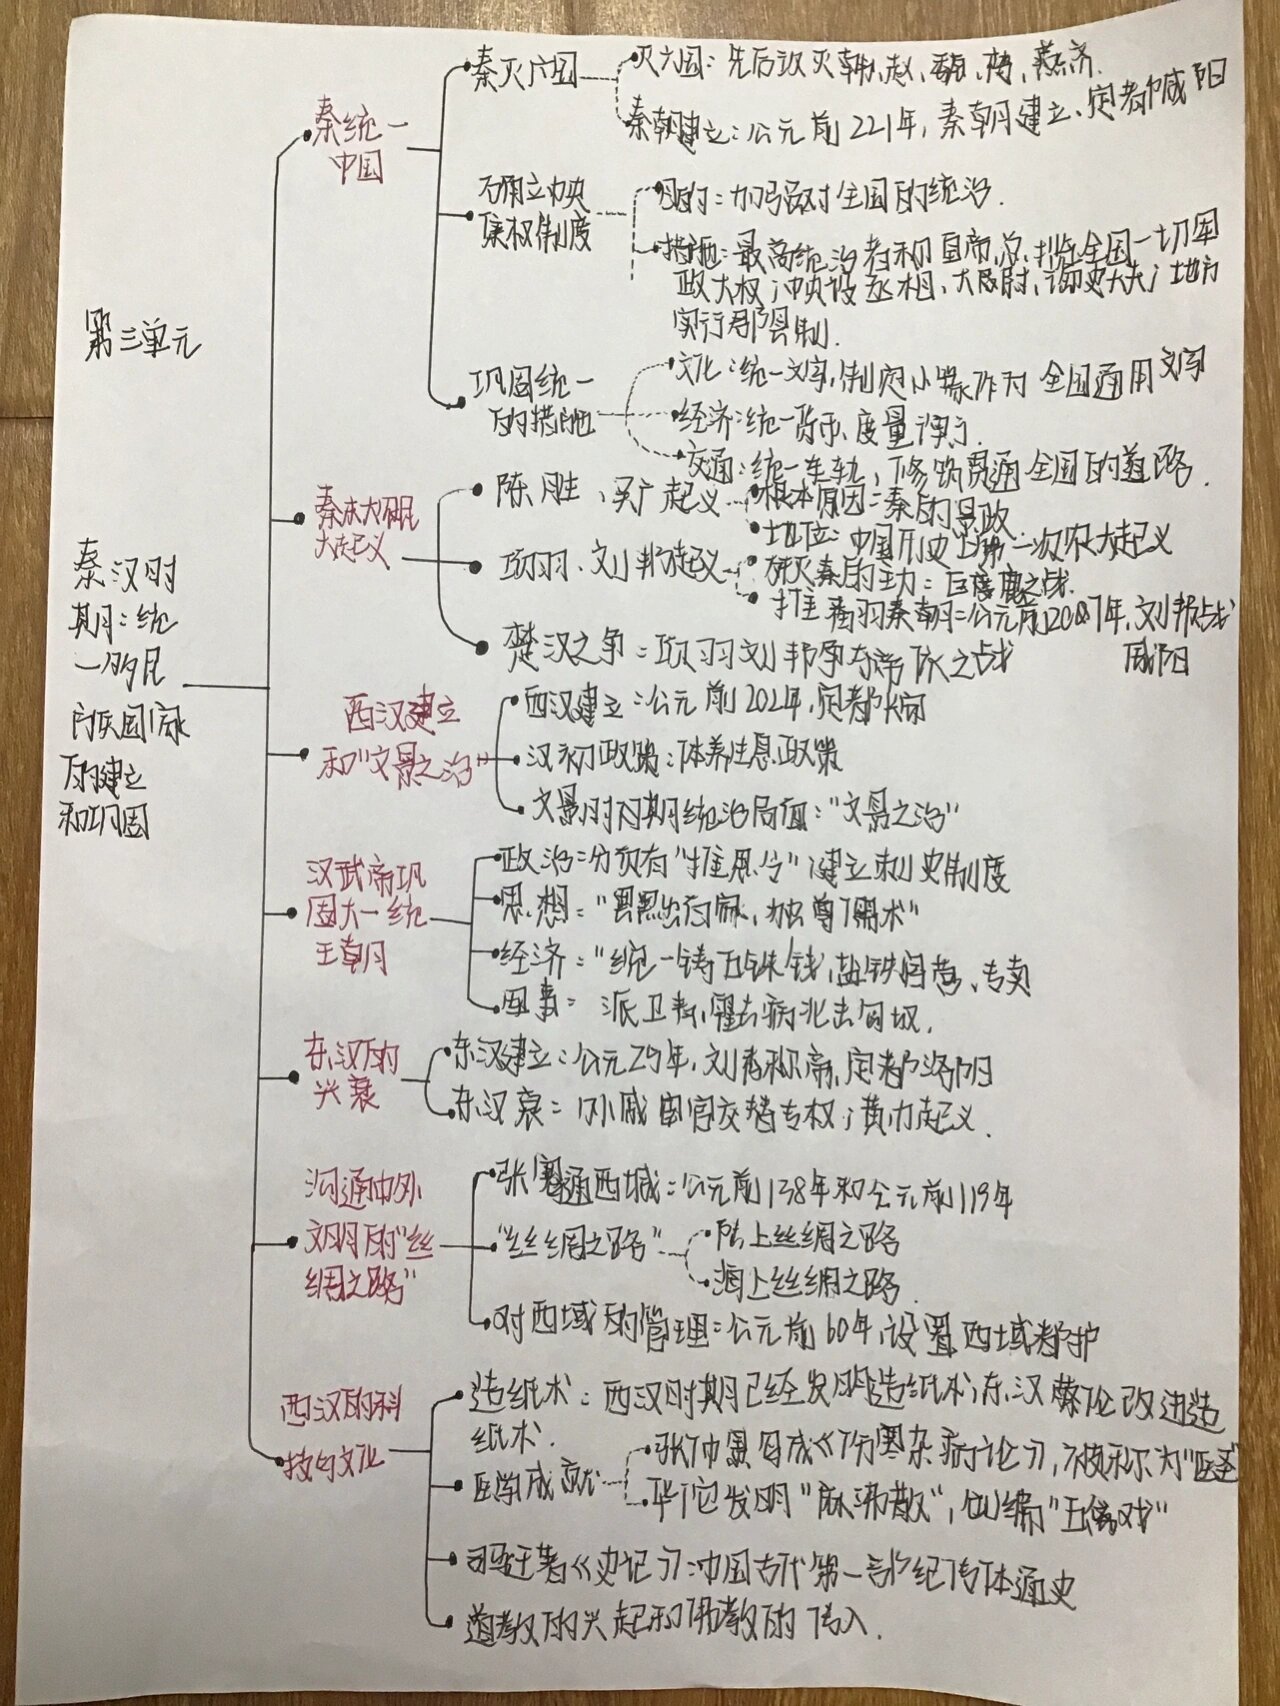 第三单元
秦汉时
期：统
一多民
族国家
的建立
和巩固
秦统一
中国
秦灭六国
灭六国：先后攻灭韩、赵、魏、楚、燕、齐.
秦朝建立：公元前221年，秦朝建立、定都咸阳
确立中央
集权制度
目的：加强对全国的统治.
措施：最高统治者称皇帝，总揽全国一切军
政大权；中央设丞相、太尉、御史大夫；地方
实行郡县制.
巩固统一
的措施
文化：统一文字，制定小篆作为全国通用文字
经济：统一货币、度量衡.
交通：统一车轨，修筑贯通全国的道路.
秦末农民
大起义
陈胜、吴广起义
根本原因：秦的暴政
地位：中国历史上第一次农民大起义
项羽、刘邦起义
歼灭秦的主力：巨鹿之战.
推翻秦朝：公元前207年，刘邦占
咸阳
楚汉之争：项羽刘邦争夺帝位之战
西汉建立
和“文景之治”
西汉建立：公元前202年，定都长安
汉初政策：休养生息政策
文景时期统治局面：“文景之治”
汉武帝巩
固大一统
王朝
政治：分颁布“推恩令”；建立刺史制度
思想：“罢黜百家，独尊儒术”
经济：“统一铸五铢钱，盐铁官营、专卖
军事：派卫青、霍去病北击匈奴.
东汉的
兴衰
东汉建立：公元25年，刘秀称帝，定都洛阳
东汉衰：外戚宦官交替专权；黄巾起义.
沟通中外
文明的“丝
绸之路”
张骞通西域：公元前138年和公元前119年
“丝绸之路”
陆上丝绸之路
海上丝绸之路.
对西域的管理：公元前60年，设置西域都护
西汉的科
技与文化
造纸术：西汉时期已经发明造纸术；东汉蔡伦改进造
纸术.
医学成就
张仲景写成《伤寒杂病论》，被称为“医圣
华佗发明“麻沸散”，创编“五禽戏”
司马迁著《史记》：中国古代第一部纪传体通史
道教的兴起和佛教的传入.